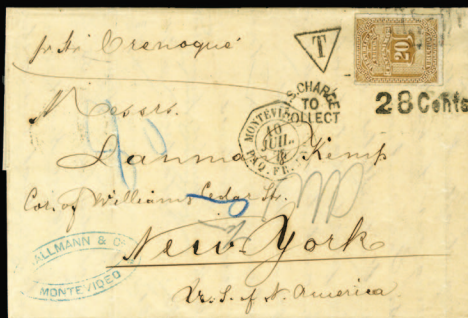 pr Str Orenoque
T
20
U.S. CHARGE
TO
COLLECT
28 Cents
Messrs.
MONTEVIDEO
10
JUIL.
PAQ. FR.
Lanman & Kemp
Cor. of Williams Cedar Str.
New-York
U. S. of N. America
ALLMANN & C
MONTEVIDEO